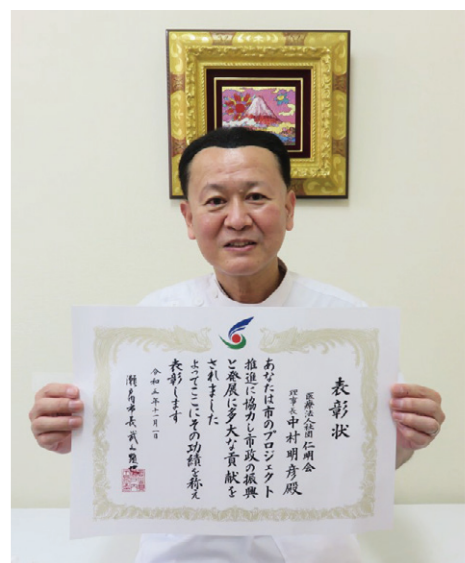 表彰状
医療法人社団 仁明会
理事長 中村明彦殿
あなたは市のプロジェクト
推進に協力し市政の振興
と発展に多大な貢献を
されました
よってここにその功績を称え
表彰します
令和三年十一月一日
瀬戸内市長 武久顕也